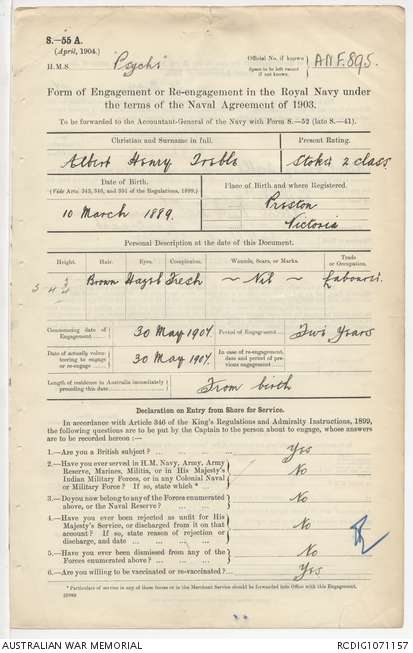 S.—55 A.
(April, 1904.)
H.M.S. "Psyche"
Official No. if known
Space to be left vacant
if not known.
A.N.F. 895.
Form of Engagement or Re-engagement in the Royal Navy under
the terms of the Naval Agreement of 1903.
To be forwarded to the Accountant-General of the Navy with Form S.—52 (late S.—41).
Christian and Surname in full. Present Rating.
Albert Henry Treble Stoker 2 class
Date of Birth. Place of Birth and where Registered.
(Vide Arts. 343, 346, and 391 of the Regulations, 1899.)
10 March 1889. Preston
Victoria
Personal Description at the date of this Document.
Height. Hair. Eyes. Complexion. Wounds, Scars, or Marks. Trade or Occupation.
5 4 Brown Hazel Fresh ~ Nil ~ Labourer.
Commencing date of Engagement 30 May 1907. Period of Engagement Two Years
Date of actually volunteering to engage or re-engage 30 May 1907. In case of re-engagement, date and period of previous engagement
Length of residence in Australia immediately preceding this date From birth
Declaration on Entry from Shore for Service.
In accordance with Article 346 of the King's Regulations and Admiralty Instructions, 1899,
the following questions are to be put by the Captain to the person about to engage, whose answers
are to be recorded hereon :—
1.—Are you a British subject? Yes
2.—Have you ever served in H.M. Navy, Army, Army
Reserve, Marines, Militia, or in His Majesty's
Indian Military Forces, or in any Colonial Naval
or Military Force? If so, state which * No
3.—Do you now belong to any of the Forces enumerated
above, or the Naval Reserve? No
4.—Have you ever been rejected as unfit for His
Majesty's Service, or discharged from it on that
account? If so, state reason of rejection or
discharge, and date No
5.—Have you ever been dismissed from any of the
Forces enumerated above? No
6.—Are you willing to be vaccinated or re-vaccinated? Yes
* Particulars of service in any of these forces or in the Merchant Service should be forwarded into Office with this Engagement.
AUSTRALIAN WAR MEMORIAL RCDIG1071157